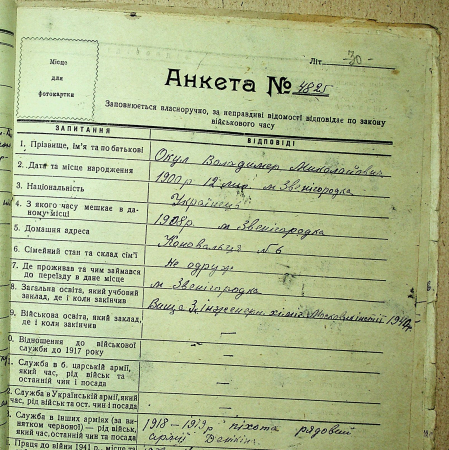 Місце
для
фотокартки
Літ. -30-
Анкета № 4825
Заповнюється власноручно, за неправдиві відомості відповідає по закону
військового часу
ЗАПИТАННЯ ВІДПОВІДІ
1. Прізвище, ім'я та по батькові Окул Володимер Миколайович
2. Дата та місце народження 1900р 12 м Звенігородка
3. Національність Українець
4. З якого часу мешкає в да-
ному місці 1908р м Звенігородка
5. Домашня адреса Коновальця №6
6. Сімейний стан та склад сім'ї не одруж
7. Де проживав та чим займався
до переїзду в дане місце м Звенігородка
8. Загальна освіта, який учбовий
заклад, де і коли закінчив Вища
9. Військова освіта, який заклад,
де і коли закінчив —
0. Відношення до військової
служби до 1917 року —
1. Служба в б. царській армії,
який час, рід військ та
останній чин і посада —
2. Служба в Українській армії, який
час, рід військ та ост. чин і посад. —
3. Служба в інших арміях (за ви-
нятком червоної) — рід військ,
який час, останній чин та посада 1918—1919р піхота рядовий
армії Денікін
4. Праця до війни 1941 р., місце та